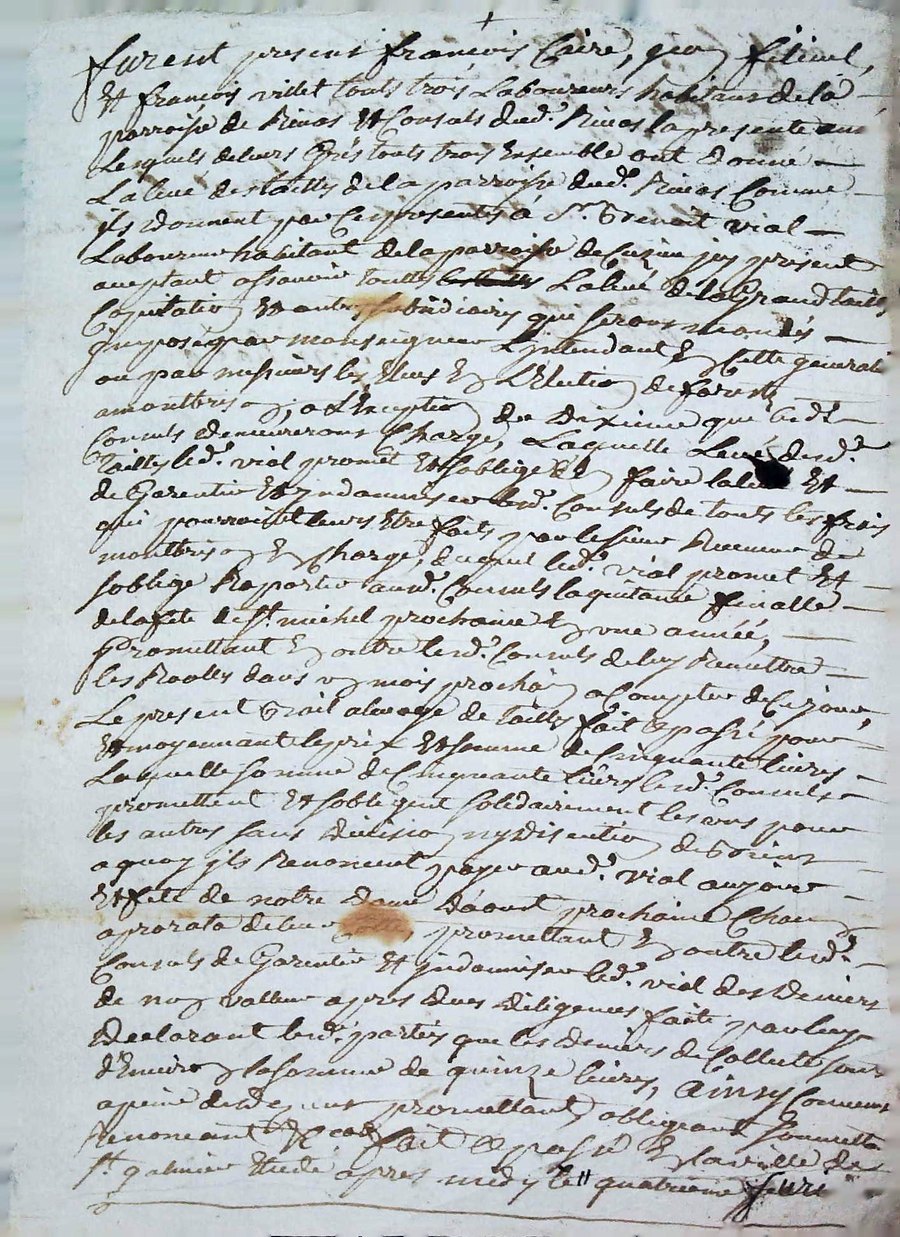 furent present françois Caire, jean filieul,
Et françois villet touts trois Laboureurs habitans de la
parroisse de Rivas Et Consuls dud.t Rivas la presente année
Lesquels de leurs Grés touts trois Ensemble ont donné
La leve des tailles de la parroisse dud.t Rivas Comme
ils donnent par Ces presentes à S.r Benoit vial
Laboureur habitant de la parroisse de Cuzieu jcy present
aceptant assavoir toutte La levé de la Grand taille,
Capitation Et autres subsidiaires qui seront mandés
jmposés par monseigneur L'jntendant En Cette generalité
ou par messieurs les Elus En L'Election de forests
a montbrison, a L'Exception du Dixieme que lesd.ts
Consuls demeureront Chargé, Laquelle Levé desd.
Tailles led.t vial promet Et soblige de faire la levé Et
de Garentir Et jndamniser lesd. Consuls de touts les frais
qui pourroient leurs Etre faits par le sieur Receveur de
montbrison En Charge, duquel led.t vial promet Et
soblige Raporter ausd. Consuls la quitance finalle
de la fete de S.t michel prochaine En une année,
Promettant En outre lesd. Consuls de luy Remettre
les Roolles dans un mois prochain a Compter de Ce jour,
Le present Bail a levage de Tailles fait et passé pour
Et moyennant le prix Et somme de Cinquante livres
Laquelle somme de Cinquante livres lesd. Consuls
promettent Et sobligent solidairement les uns pour
les autres sans division ny discution de Biens
a quoy jls Renoncent payer aud.t vial au jour
Et fete de notre Dame Daoust prochaine Chacun
a prorata de leur promettant En outre lesd.
Consuls de Garentir Et jndamniser led.t vial des Deniers
de non valleur apres dues diligences faite par luy
Declarant lesd. parties que les deniers de Collecte sont
d'Environ la somme de quinze livres, Ainsy Convenu
a peine de promettant, obligeant soumettant
Renonceant Et Car fait et passé En la ville de
S.t galmier Etude apres midy le quatrieme